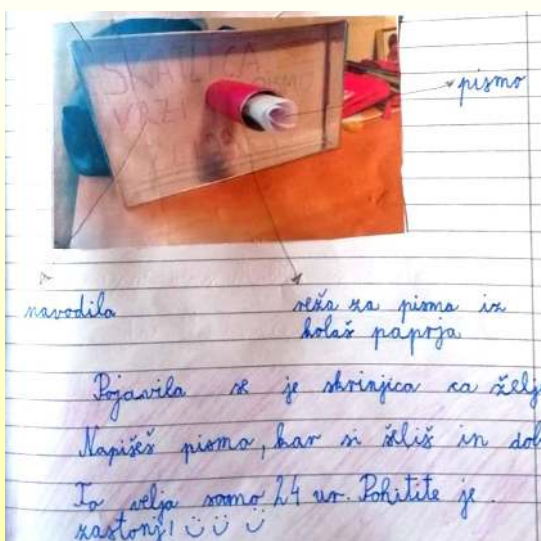 ŠKATLICA
VRZI PISMO
pismo
navodila
reža za pisma iz
kolaž paprja
Pojavila se je skrinjica za želj
Napišeš pismo, kar si šliš in dob
Ta velja samo 24 ur. Pohitite je
zastonj! ü ü ü